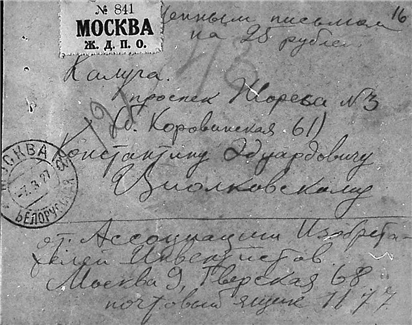 № 841
МОСКВА
Ж. Д. П. О.
Ценным письмом
16
на 25 рублей
Калуга.
проспект Жореса №3
(б. Коровинская 61)
Константину Эдуардовичу
Циолковскому
МОСКВА
БЕЛОРУССКАЯ
от Ассоциации Изобрета-
телей Инвентистов.
Москва 9, Тверская 68
почтовый ящик 1177